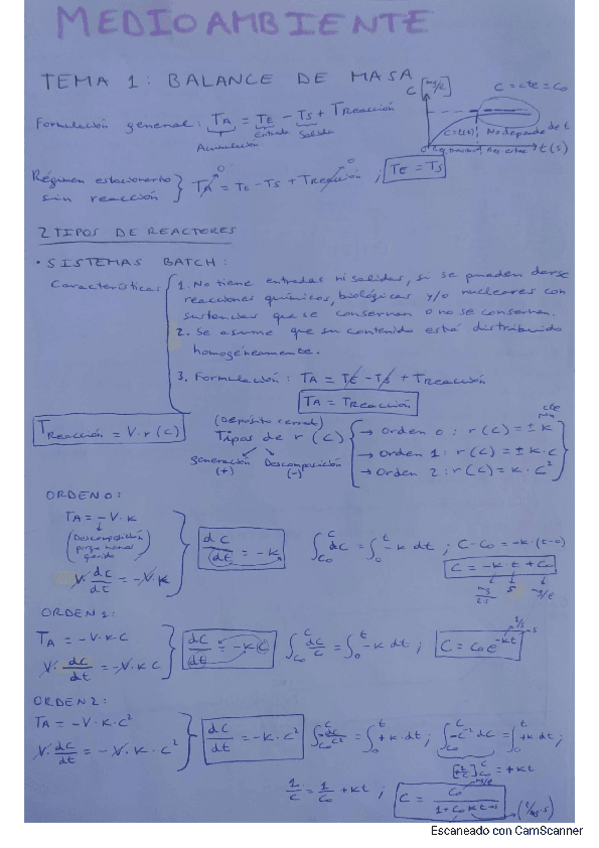 MEDIO AMBIENTE
TEMA 1: BALANCE DE MASA
C [mg/l]
C = cte = C₀
Formulación general: TA = TE - TS + TReacción
Acumulación
Entrada
Salida
C=f(t)
No depende de t
t(s)
Régimen estacionario
sin reacción
TA = TE - TS + TReacción ; TE = TS
0
0
2 TIPOS DE REACTORES
· SISTEMAS BATCH:
Características
1. No tiene entradas ni salidas, si se pueden darse
reacciones químicas, biológicas y/o nucleares con
sustancias que se conservan o no se conservan.
2. Se asume que su contenido está distribuido
homogéneamente.
3. Formulación: TA = TE - TS + TReacción
TA = TReacción
TReacción = V · r (C)
Tipos de r (C)
generación
(+)
Descomposición
(-)
cte
→ Orden 0 : r (C) = ± K
→ Orden 1 : r (C) = ± K · C
→ Orden 2 : r (C) = K · C²
ORDEN 0:
TA = - V · K
V · dC/dt = - V · K
dC/dt = - K
∫_{C₀}^{C} dC = ∫_{0}^{t} -K dt ; C - C₀ = -K · (t-0)
C = -K · t + C₀
s
mg/l
ORDEN 1:
TA = - V · K · C
V · dC/dt = - V · K · C
dC/dt = - K · C
∫_{C₀}^{C} dC/C = ∫_{0}^{t} -K dt ; C = C₀ e^{-Kt}
ORDEN 2:
TA = - V · K · C²
V · dC/dt = - V · K · C²
dC/dt = - K · C²
∫_{C₀}^{C} -dC/C² = ∫_{0}^{t} +K dt ; ∫_{C₀}^{C} -C⁻² dC = ∫_{0}^{t} +K dt ;
= +Kt
1/C = 1/C₀ + Kt ; C = C₀ / (1 + C₀ · K · t)
mg/l
Escaneado con CamScanner